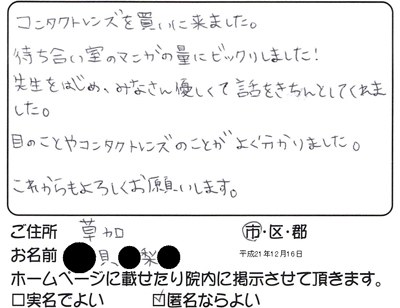 コンタクトレンズを買いに来ました。
待ち合い室のマンガの量にビックリしました!
先生をはじめ、みなさん優しくて話をきちんとしてくれま
した。
目のことやコンタクトレンズのことがよく分かりました。
これからもよろしくお願いします。
ご住所 草加 市・区・郡
お名前 貝 梨 平成21年12月16日
ホームページに載せたり院内に掲示させて頂きます。
□実名でよい ☑匿名ならよい